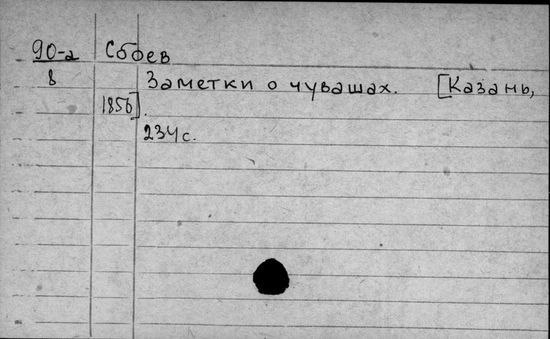 90-а Сбоев
8 Заметки о чувашах. [Казань,
1856].
234 с.